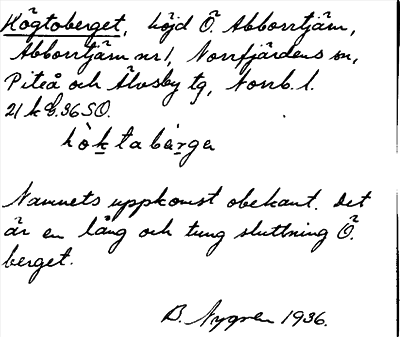 Högtoberget, höjd Ö. Abborrtjärn,
Abborrtjärn nr 1, Norrfjärdens sn,
Piteå och Älvsby tg, Norrb. l.
21 k 8. 36 SO.
hòktabärga
Namnets uppkomst obekant. Det
är en lång och tung sluttning Ö.
berget.
B. Nygren 1936.